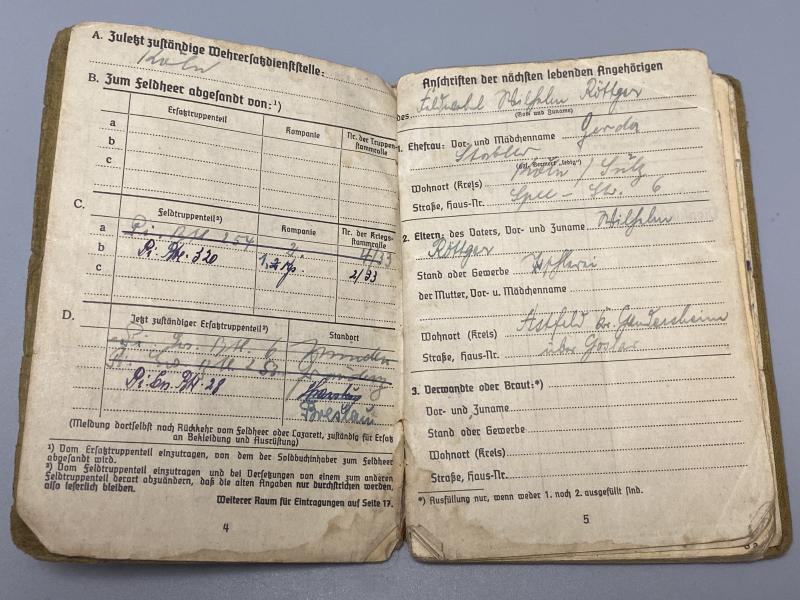 A. Zuletzt zuständige Wehrersatzdienststelle:
Köln
B. Zum Feldheer abgesandt von:¹)
Ersatztruppenteil Kompanie Nr. der Truppenstammrolle
a
b
c
C. Feldtruppenteil²) Kompanie Nr. der Kriegsstammrolle
a Pi. Btl. 254 2. 4/33
b Pi. Btl. 320 2/33
c
D. Jetzt zuständiger Ersatztruppenteil²) Standort
Pi. Btl. 6 Minden
Pi. Btl.
Pi. Ers. Btl. 28
Breslau
(Meldung dortselbst nach Rückkehr vom Feldheer oder Lazarett, zuständig für Ersatz
an Bekleidung und Ausrüstung)
¹) Vom Ersatztruppenteil einzutragen, von dem der Soldbuchinhaber zum Feldheer
abgesandt wird.
²) Vom Feldtruppenteil einzutragen und bei Versetzungen von einem zum anderen
Feldtruppenteil derart abzuändern, daß die alten Angaben nur durchstrichen werden,
also leserlich bleiben.
Weiterer Raum für Eintragungen auf Seite 17.
4
Anschriften der nächsten lebenden Angehörigen
des Feldwebel Wilhelm Röttger
(Vor- und Zuname)
1. Ehefrau: Vor- und Mädchenname Gerda
Stobler
(ggf. Vermerk „ledig")
Wohnort (Kreis) Köln / Sülz
Straße, Haus-Nr. Spee-Str. 6
2. Eltern: des Vaters, Vor- und Zuname Wilhelm
Röttger
Stand oder Gewerbe Tischlerei
der Mutter, Vor- u. Mädchenname
Wohnort (Kreis) Astfeld Kr. Gandersheim
Straße, Haus-Nr. über Goslar
3. Verwandte oder Braut:*)
Vor- und Zuname
Stand oder Gewerbe
Wohnort (Kreis)
Straße, Haus-Nr.
*) Ausfüllung nur, wenn weder 1. noch 2. ausgefüllt sind.
5